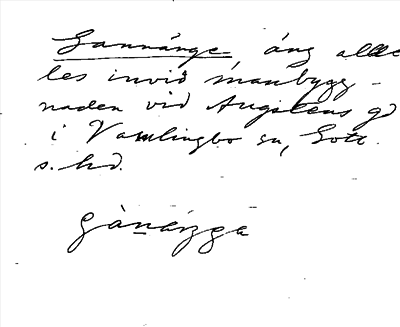 Gannänge, äng allde
les invid manbygg-
naden vid Augstens gd
i Vamlingbo sn, Gotl.
s. hd.
gànä́ŋgä